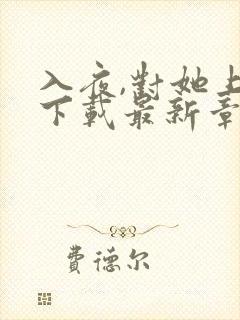 入夜,對她上
下載最新章
費德尔